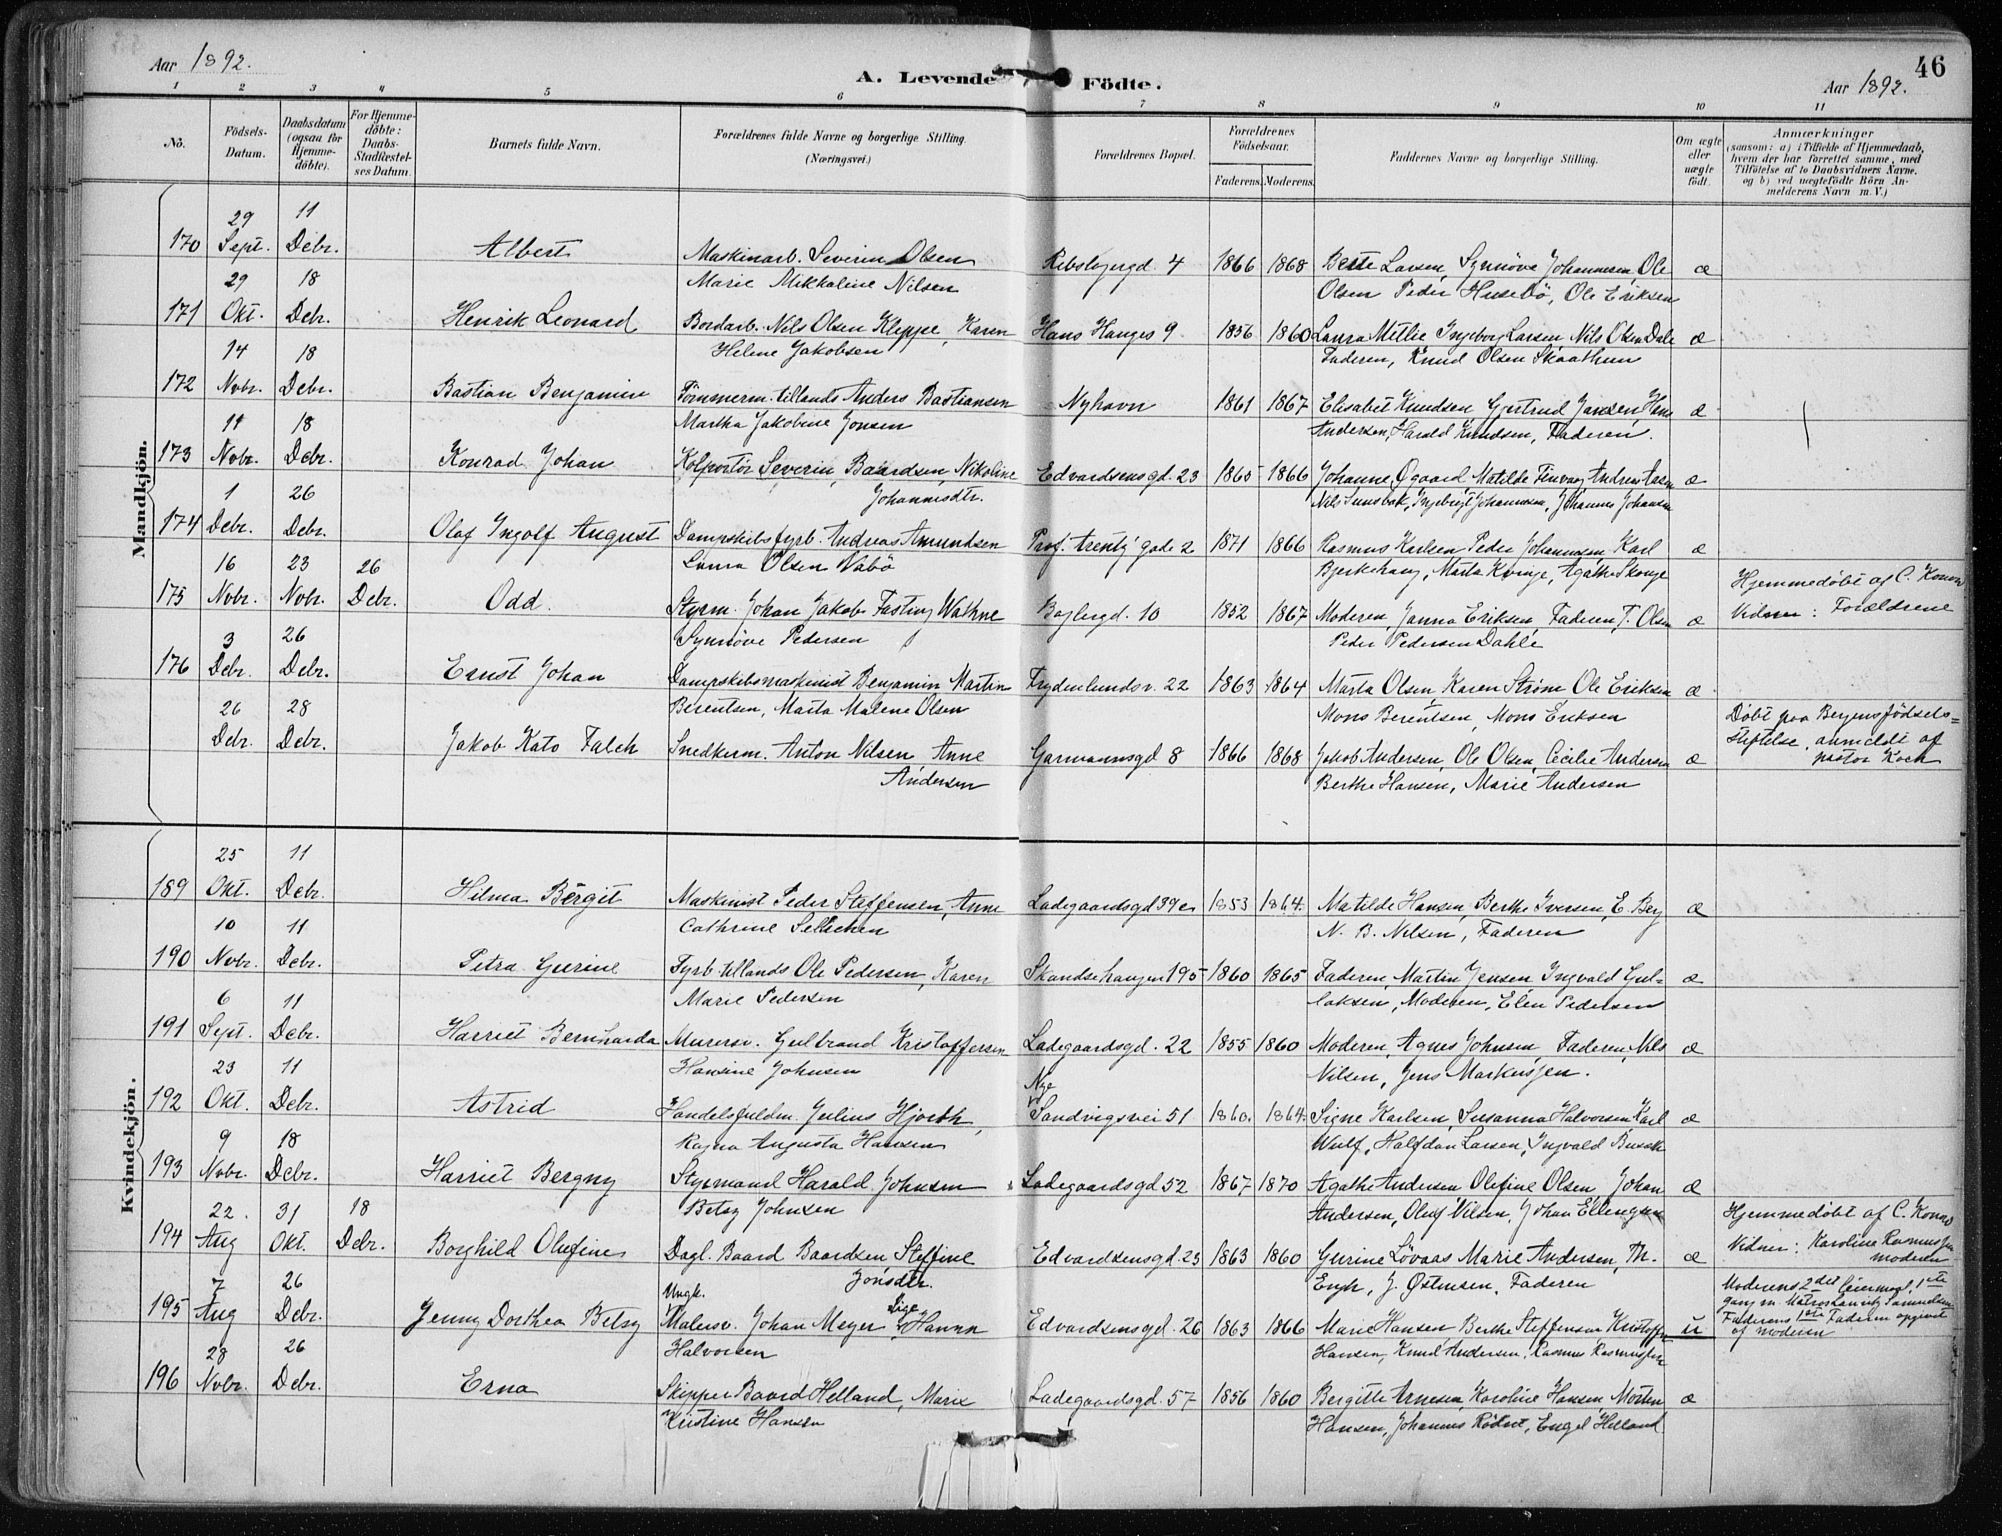 46
Aar 1892.
A. Levende Fødte.
Aar 1892.
1 2 3 4 5 6 7 8 9 10 11
No.
Födsels-Datum.
Daabsdatum (ogsaa for Hjemme-døbte).
For Hjemme-døbte: Daabs-Stadfæstel-ses Datum.
Barnets fulde Navn.
Forældrenes fulde Navne og borgerlige Stilling. (Næringsvei.)
Forældrenes Bopæl.
Forældrenes Fødselsaar.
Faderens. Moderens.
Faddernes Navne og borgerlige Stilling.
Om ægte eller uægte født.
Anmærkninger
(saasom: a) i Tilfælde af Hjemmedaab, hvem der har forrettet samme, med Tilføielse af to Daabsvidners Navne. og b) ved uægtefødte Børn An-melderens Navn m. V.)
Mandkjön.
29 11
170 Sept. Debr. Albert Maskinarb. Severin Olsen Rebslagergd. 4 1866 1868 Berte Larsen, Synnöve Johannesen, Ole æ
Marie Mikkaline Nilsen Olsen Peder Husebö, Ole Eriksen
29 18
171 Okt. Debr. Henrik Leonard Bordarb. Nils Olsen Kleppe, Karen Hans Hauges 9 1856 1860 Laura Ingeborg Larsen, Nils Olsen Dale æ
Helene Jakobsen Faderen, Knud Olsen Skaathun
14 18
172 Novbr. Debr. Bastian Benjamin Tömmerm. tillands Anders Bastiansen Nyhavn 1861 1867 Elisabet Knudsen, Gjertrud Jansen, Hans æ
Martha Jakobine Jonsen Andersen, Harald Knudsen, Faderen.
11 18
173 Novbr. Debr. Konrad Johan Kolportör Severin Baardsen, Nikoline Edvardsensgd. 23 1865 1866 Johanne Øgaard Matilde Andrea æ
Johannesdtr. Nils Johannesen, Johannes Johansen
1 26
174 Debr. Debr. Olaf Ingolf August Dampskibsfyrb. Andreas Amundsen Prof. gade 2 1871 1866 Rasmus Karlsen Peder Johannesen, Karl æ
Laura Olsen Vabö Bjerkehaug, Marta Kvinge, Agathe Skonge
16 23 26
175 Novbr. Novbr. Debr. Odd. Styrm. Johan Jakob Fasting Wathne Baglergd. 10 1852 1867 Moderen, Janna Eriksen, Faderen, T. Olsen æ Hjemmedøbt af C. Konow
Synnöve Pedersen Peder Pedersen Dahle Vidner: Forældrene
3 26
176 Debr. Debr. Ernst Johan Dampskibsmaskinist Benjamin Martin Frydenlundsv. 22 1863 1864 Marta Olsen Karen Strøm Ole Eriksen æ
Berentsen, Marta Malene Olsen Mons Berentsen, Mons Eriksen
26 28
Debr. Debr. Jakob Kato Falch Snedkerm. Anton Nilsen Anne Garmannsgd 8 1866 1868 Jakob Andersen, Ole Olsen, Cecilie Andersen æ Døbt paa Bergens fødsels-
Andersen Berthe Hansen, Marie Andersen stiftelse, anmeldt af
pastor Koch
Kvindekjön.
25 11
189 Okt. Debr. Hilma Bergit Maskinist Peder Steffensen, Anne Ladegaardsgd 39c 1853 1864. Matilde Hansen, Berthe Iversen, E. Berg æ
Cathrine N. B. Nilsen, Faderen
10 11
190 Novbr. Debr. Petra Gurine Fyrb. tillands Ole Pedersen, Karen Skandsehaugen 195 1860 1865 Faderen, Martin Jensen, Ingvald Gul- æ
Marie Pedersen laksen, Moderen, Elen Pedersen
6 11
191 Sept. Debr. Harriet Bernharda Murersv. Gulbrand Kristoffersen Ladegaardsgd. 22 1855 1860 Moderen, Agnes Johnsen Faderen, Nils æ
Hansine Johnsen Nilsen, Jens Markussen.
23 11
192 Okt. Debr. Astrid Handelsfuldm. Julius Hjorth, Nye Sandvigsvei 51 1860. 1864. Signe Karlsen, Susanna Halvorsen Karl æ
Ragna Augusta Hansen Wulf, Halfdan Larsen, Ingvald
9 18
193 Novbr. Debr. Harriet Bergny Styrmand Harald Johnsen Ladegaardsgd 52 1867 1870 Agathe Andersen Olefine Olsen Johan æ
Betsy Johnsen Andersen, Oluf Nilsen, Johan Ellingsen
22. 31 18
194 Aug Okt. Debr. Borghild Olufine Dagl. Baard Baardsen Steffine Edvardsensgd. 23 1863 1860 Gurine Løvaas Marie Andersen, Th. æ Hjemmedøbt af C. Konow
Jonsdtr. Engh, J. Østensen, Faderen Vidner: Karoline Rasmussen
moderen
7 26
195 Aug Debr. Jenny Dorthea Betsy Ungk. Malersv. Johan Meyer Pige Hanna Edvardsensgd. 26 1863 1866 Marie Hansen Berthe Steffensen Kristoffer u Moderens 2det Leiermaal, 1ste
Halvorsen Hansen, Knud Andersen, Rasmus Rasmussen gang m. Matros Samuelsen
Faderens 1ste Faderen opgivet
af moderen
28 26
196 Novbr. Debr. Erna Skipper Baard Helland, Marie Ladegaardsgd. 57 1856 1860 Bergitte Arnesen Karoline Hansen, Morten æ
Kristine Hansen Hansen, Johannes Rödne, Engel Helland